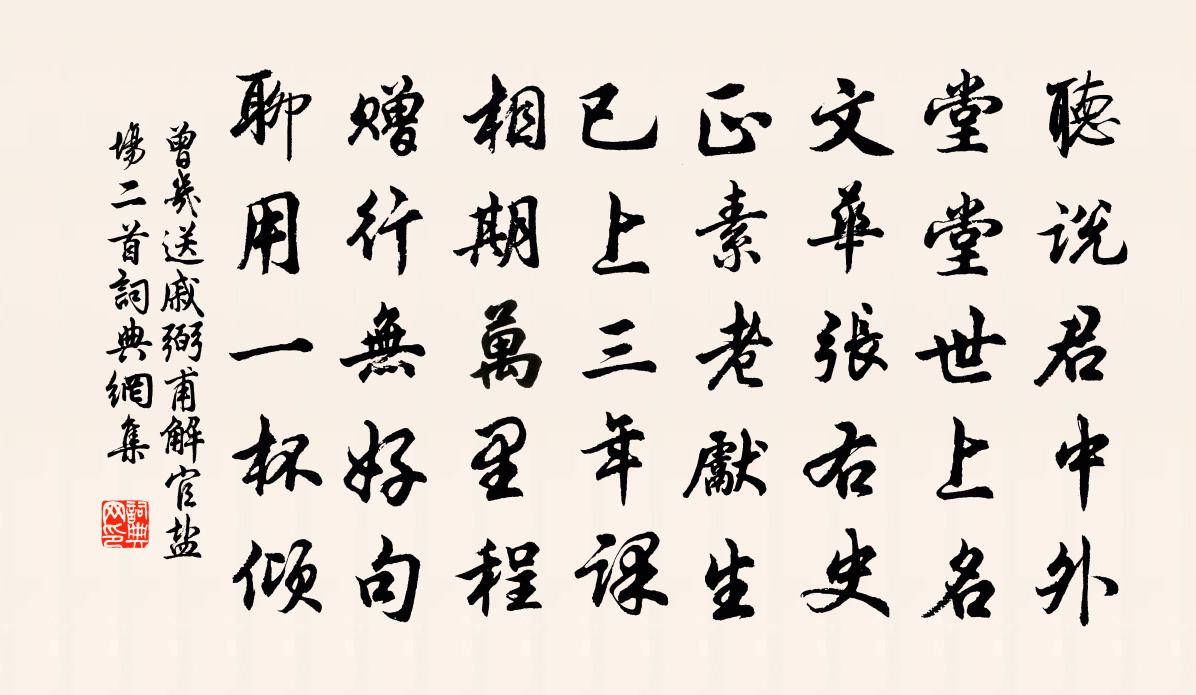 聽説君中外
堂堂世上名
文華張右史
正素老獻生
已上三年課
相期萬里程
贈行無好句
聊用一杯傾
曾幾送戚弼甫解官盐
場二首詞典網集
詞典
网印